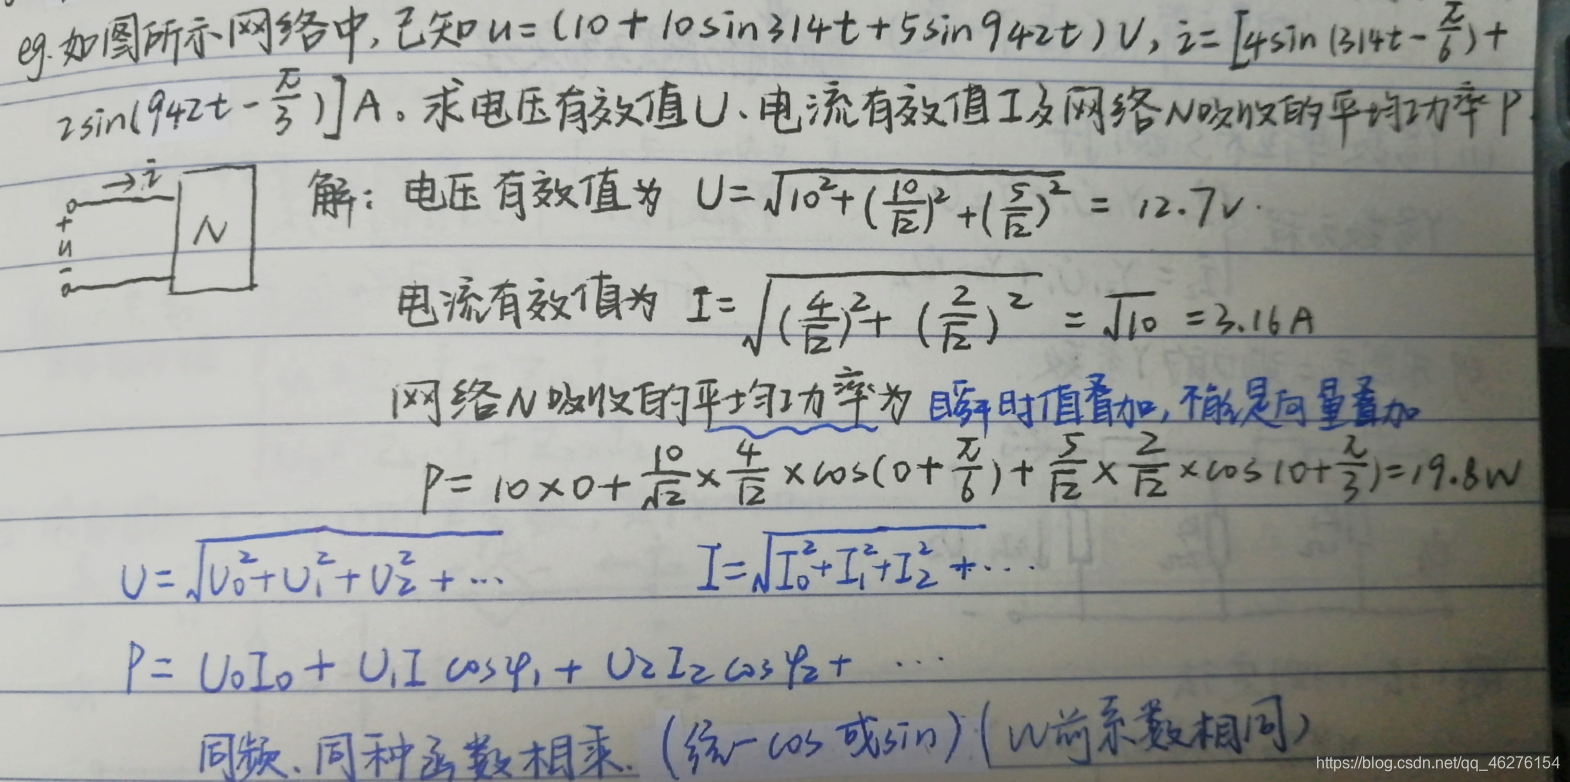 eg. 如图所示网络中,已知u=(10+10sin314t+5sin942t)V, i=[4sin(314t-π/6)+
2sin(942t-π/3)]A。求电压有效值U、电流有效值I及网络N吸收的平均功率P.
→i
+ u - N
解: 电压有效值为 U=√(10²+(10/√2)²+(5/√2)²) = 12.7V.
电流有效值为 I=√((4/√2)²+(2/√2)²) = √10 =3.16A
网络N吸收的平均功率为 瞬时值叠加,不能是向量叠加
P= 10×0+10/√2×4/√2×cos(0+π/6)+5/√2×2/√2×cos(0+π/3)=19.8W
U=√(U₀²+U₁²+U₂²+···) I=√(I₀²+I₁²+I₂²+···)
P= U₀I₀+U₁I cosφ₁+U₂I₂cosφ₂+ ···
同频、同种函数相乘.(统一cos或sin)(W前系数相同)
https://blog.csdn.net/qq_46276154